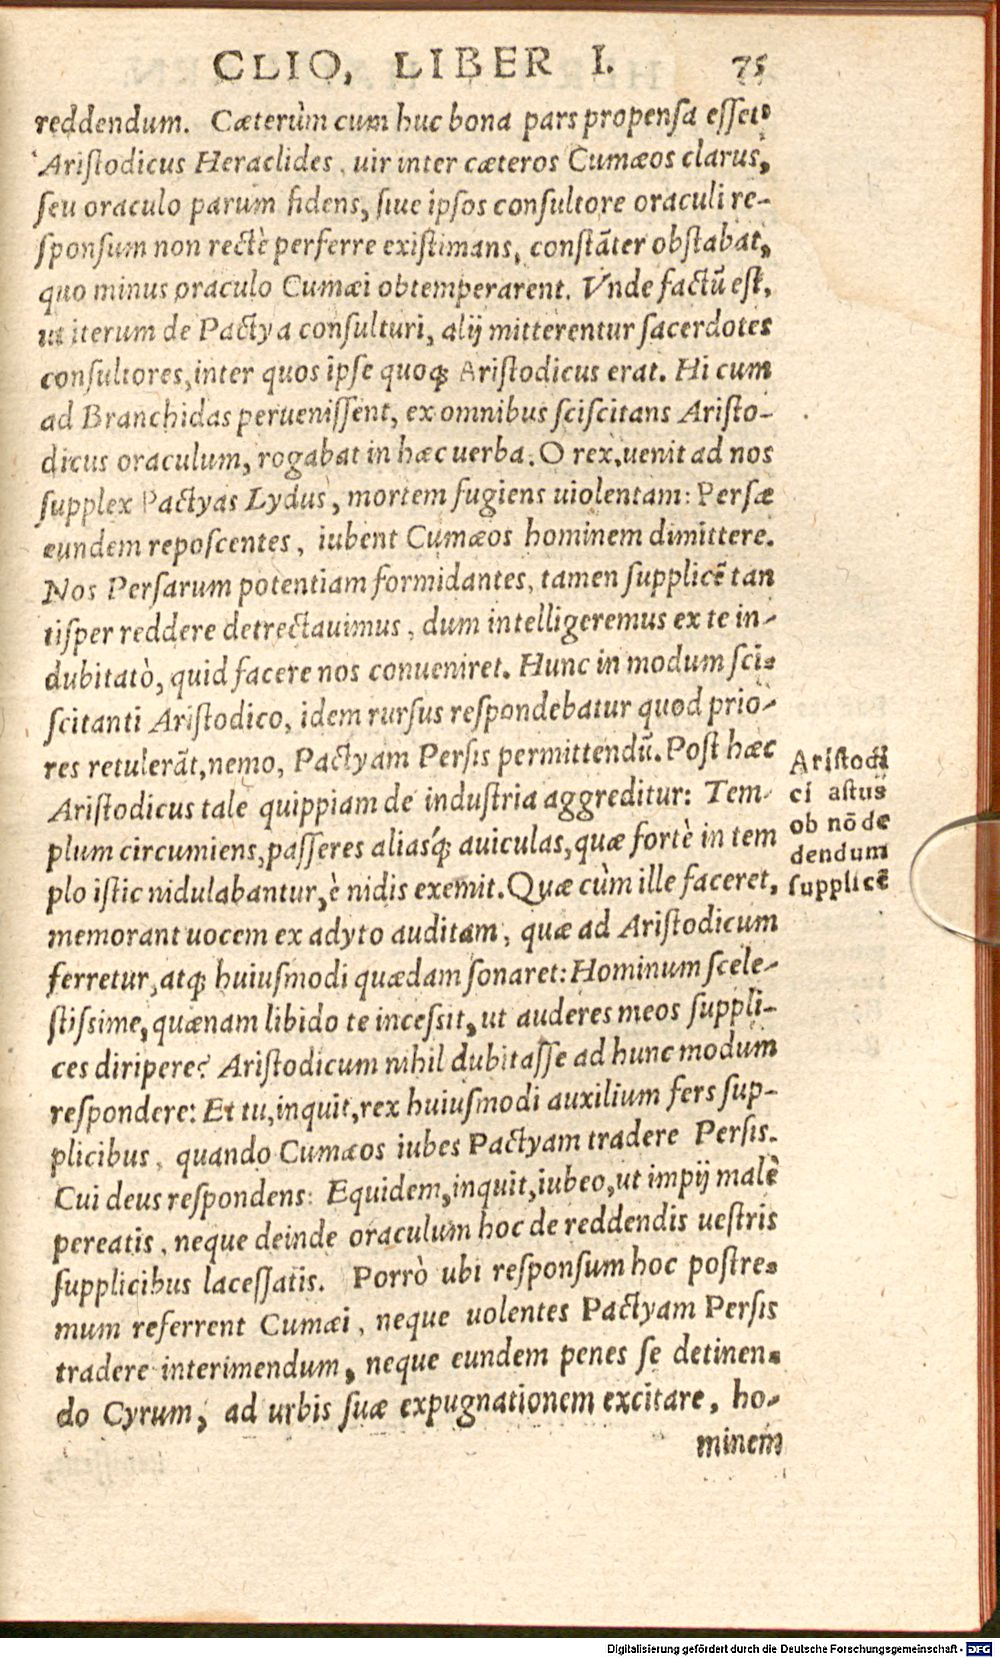 CLIO, LIBER I. 75
reddendum. Cæterùm cum huc bona pars propensa esset,
Aristodicus Heraclides, uir inter cæteros Cumæos clarus,
seu oraculo parum fidens, siue ipsos consultore oraculi re-
sponsum non rectè perferre existimans, constāter obstabat,
quo minus oraculo Cumæi obtemperarent. Vnde factū est,
ut iterum de Pactya consulturi, alij mitterentur sacerdotes
consultores, inter quos ipse quoq; Aristodicus erat. Hi cum
ad Branchidas peruenissent, ex omnibus sciscitans Aristo-
dicus oraculum, rogabat in hæc uerba. O rex, uenit ad nos
supplex Pactyas Lydus, mortem fugiens uiolentam: Persæ
eundem reposcentes, iubent Cumæos hominem dimittere.
Nos Persarum potentiam formidantes, tamen supplicē tan
tisper reddere detrectauimus, dum intelligeremus ex te in-
dubitatò, quid facere nos conueniret. Hunc in modum sci-
scitanti Aristodico, idem rursus respondebatur quod prio-
res retulerāt, nemo, Pactyam Persis permittendū. Post hæc
Aristodicus tale quippiam de industria aggreditur: Tem-
plum circumiens, passeres aliasq́; auiculas, quæ fortè in tem
plo istic nidulabantur, è nidis exemit. Quæ cùm ille faceret,
memorant uocem ex adyto auditam, quæ ad Aristodicum
ferretur, atq; huiusmodi quædam sonaret: Hominum scele-
stissime, quænam libido te incessit, ut auderes meos suppli-
ces diripere? Aristodicum nihil dubitasse ad hunc modum
respondere: Et tu, inquit, rex huiusmodi auxilium fers sup-
plicibus, quando Cumæos iubes Pactyam tradere Persis.
Cui deus respondens: Equidem, inquit, iubeo, ut impij malè
pereatis, neque deinde oraculum hoc de reddendis uestris
supplicibus lacessatis. Porrò ubi responsum hoc postre-
mum referrent Cumæi, neque uolentes Pactyam Persis
tradere interimendum, neque eundem penes se detinen-
do Cyrum, ad urbis suæ expugnationem excitare, ho-
minem
Aristodi
ci astus
ob nō de
dendum
supplicē
Digitalisierung gefördert durch die Deutsche Forschungsgemeinschaft - DFG